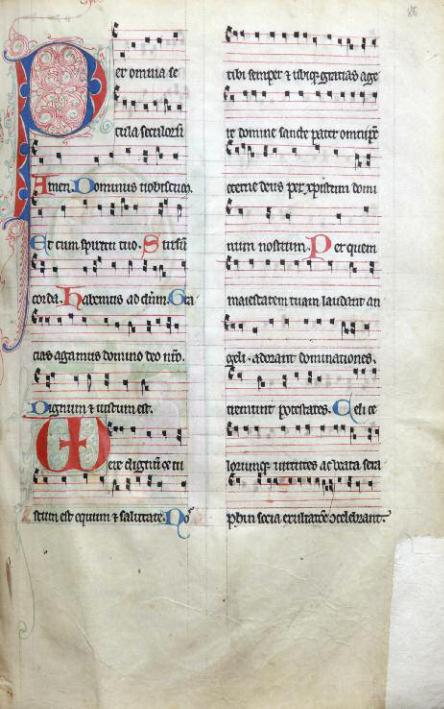 Per omnia se
cula seculorum
Amen. Dominus vobiscum.
Et cum spiritu tuo. Sursum
corda. Habemus ad dnm. Gra
cias agamus domino deo nro.
Dignum ⁊ iustum est.
Vere dignum ⁊ iu
stum est equum ⁊ salutare. Nos
tibi semper ⁊ ubiq; gratias age
re domine sancte pater omnipotens
eterne deus per xpistum domi
num nostrum. Per quem
maiestatem tuam laudant an
geli. adorant dominationes.
tremunt potestates. Celi ce
lorumq; virtutes ac beata sera
phin socia exultatione ↄcelebrant.